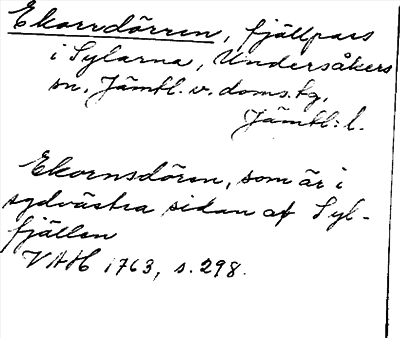 Ekorrdörren, fjällpass
i Sylarna, Undersåkers
sn, Jämtl. v. doms.tg,
Jämtl:l.
Ekornsdören, som är i
sydvästra sidan af Syl-
fjällen
VAH 1763, s. 298.